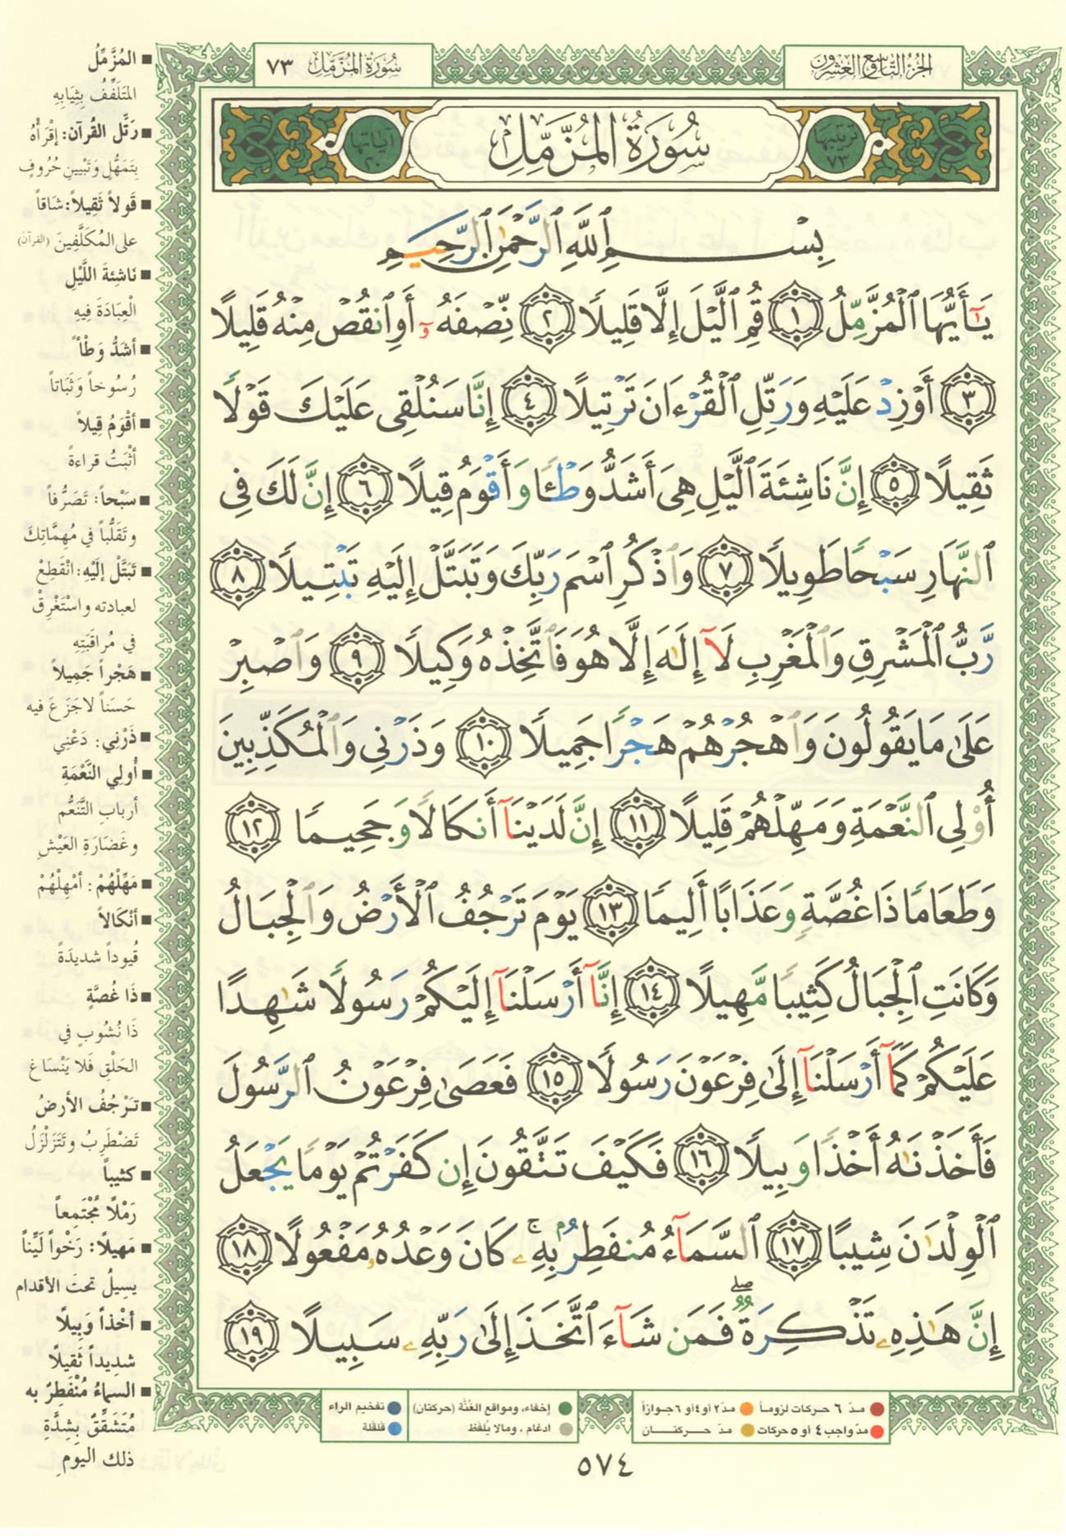 الجزء التاسع والعشرون
سورة المزمل ٧٣
ترتيبها ٧٣
سُورَةُ المُزَّمِّلِ
آياتها ٢٠
بِسْمِ ٱللَّهِ ٱلرَّحْمَٰنِ ٱلرَّحِيمِ
يَٰٓأَيُّهَا ٱلْمُزَّمِّلُ ١ قُمِ ٱلَّيْلَ إِلَّا قَلِيلًا ٢ نِّصْفَهُۥٓ أَوِ ٱنقُصْ مِنْهُ قَلِيلًا
٣ أَوْ زِدْ عَلَيْهِ وَرَتِّلِ ٱلْقُرْءَانَ تَرْتِيلًا ٤ إِنَّا سَنُلْقِى عَلَيْكَ قَوْلًا
ثَقِيلًا ٥ إِنَّ نَاشِئَةَ ٱلَّيْلِ هِىَ أَشَدُّ وَطْـًٔا وَأَقْوَمُ قِيلًا ٦ إِنَّ لَكَ فِى
ٱلنَّهَارِ سَبْحًا طَوِيلًا ٧ وَٱذْكُرِ ٱسْمَ رَبِّكَ وَتَبَتَّلْ إِلَيْهِ تَبْتِيلًا ٨
رَّبُّ ٱلْمَشْرِقِ وَٱلْمَغْرِبِ لَآ إِلَٰهَ إِلَّا هُوَ فَٱتَّخِذْهُ وَكِيلًا ٩ وَٱصْبِرْ
عَلَىٰ مَا يَقُولُونَ وَٱهْجُرْهُمْ هَجْرًا جَمِيلًا ١٠ وَذَرْنِى وَٱلْمُكَذِّبِينَ
أُو۟لِى ٱلنَّعْمَةِ وَمَهِّلْهُمْ قَلِيلًا ١١ إِنَّ لَدَيْنَآ أَنكَالًا وَجَحِيمًا ١٢
وَطَعَامًا ذَا غُصَّةٍ وَعَذَابًا أَلِيمًا ١٣ يَوْمَ تَرْجُفُ ٱلْأَرْضُ وَٱلْجِبَالُ
وَكَانَتِ ٱلْجِبَالُ كَثِيبًا مَّهِيلًا ١٤ إِنَّآ أَرْسَلْنَآ إِلَيْكُمْ رَسُولًا شَٰهِدًا
عَلَيْكُمْ كَمَآ أَرْسَلْنَآ إِلَىٰ فِرْعَوْنَ رَسُولًا ١٥ فَعَصَىٰ فِرْعَوْنُ ٱلرَّسُولَ
فَأَخَذْنَٰهُ أَخْذًا وَبِيلًا ١٦ فَكَيْفَ تَتَّقُونَ إِن كَفَرْتُمْ يَوْمًا يَجْعَلُ
ٱلْوِلْدَٰنَ شِيبًا ١٧ ٱلسَّمَآءُ مُنفَطِرٌۢ بِهِۦ ۚ كَانَ وَعْدُهُۥ مَفْعُولًا ١٨
إِنَّ هَٰذِهِۦ تَذْكِرَةٌ ۖ فَمَن شَآءَ ٱتَّخَذَ إِلَىٰ رَبِّهِۦ سَبِيلًا ١٩
■ المُزَّمِّلُ
المتَلَفِّفُ بِثِيَابِهِ
■ رَتِّلِ القُرآن: إقْرَأْهُ
بِتَمَهُّلٍ وَتَبْيينِ حُرُوفٍ
■ قَولاً ثَقِيلاً: شَاقاً
على المُكَلَّفِينَ (القرآن)
■ نَاشِئةَ اللَّيْلِ
الْعِبَادَةَ فِيهِ
■ أشَدُّ وَطْأً
رُسُوخاً وَثَبَاتاً
■ أقْوَمُ قِيلاً
أثْبَتُ قراءةً
■ سَبْحاً: تَصَرُّفاً
وتَقَلُّباً في مُهِمَّاتِكَ
■ تَبَتَّلْ إلَيْهِ: انْقَطِعْ
لعبادته واسْتَغْرِقْ
في مُراقَبَتِهِ
■ هَجْراً جَمِيلاً
حَسَناً لا جَزَعَ فيه
■ ذَرْنِي: دَعْنِي
■ أُولِي النَّعْمَةِ
أربابِ التَّنَعُّم
وغَضَارَةِ العَيْشِ
■ مَهِّلْهُمْ: أمْهِلْهُمْ
■ أنْكَالاً
قُيوداً شديدَةً
■ ذَا غُصَّةٍ
ذَا نُشُوبٍ في
الحَلْقِ فَلا يَنْسَاغ
■ تَرْجُفُ الأرضُ
تَضْطَرِبُ وتَتَزَلْزَلُ
■ كثيباً
رَمْلاً مُجْتَمِعاً
■ مَهيلاً: رَخْواً لَيِّناً
يسِيلُ تحتَ الأقدام
■ أخْذاً وَبِيلاً
شديداً ثَقِيلاً
■ السماءُ مُنْفَطِرٌ به
مُتَشَقِّقٌ بِشِدَّةِ
ذلك اليومِ
مدّ ٦ حركات لزوماً
مدّ ٢ أو ٤ أو ٦ جوازاً
مدّ واجب ٤ أو ٥ حركات
مدّ حركتان
إخفاء، ومواقع الغُنَّة (حركتان)
ادغام، ومالا يُلفَظ
تفخيم الراء
قلقلة
٥٧٤